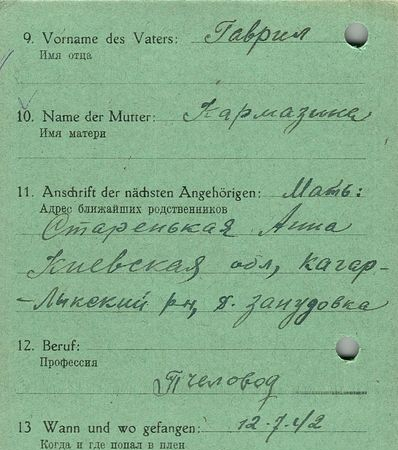 9. Vorname des Vaters: Гаврил
Имя отца
10. Name der Mutter: Кармазина
Имя матери
11. Anschrift der nächsten Angehörigen: Мать:
Адрес ближайших родственников
Старенькая Анна
Киевская обл, Кагар-
-лыкский рн, д. Занудовка
12. Beruf:
Профессия
Пчеловод
13 Wann und wo gefangen: 12.7.42
Когда и где попал в плен